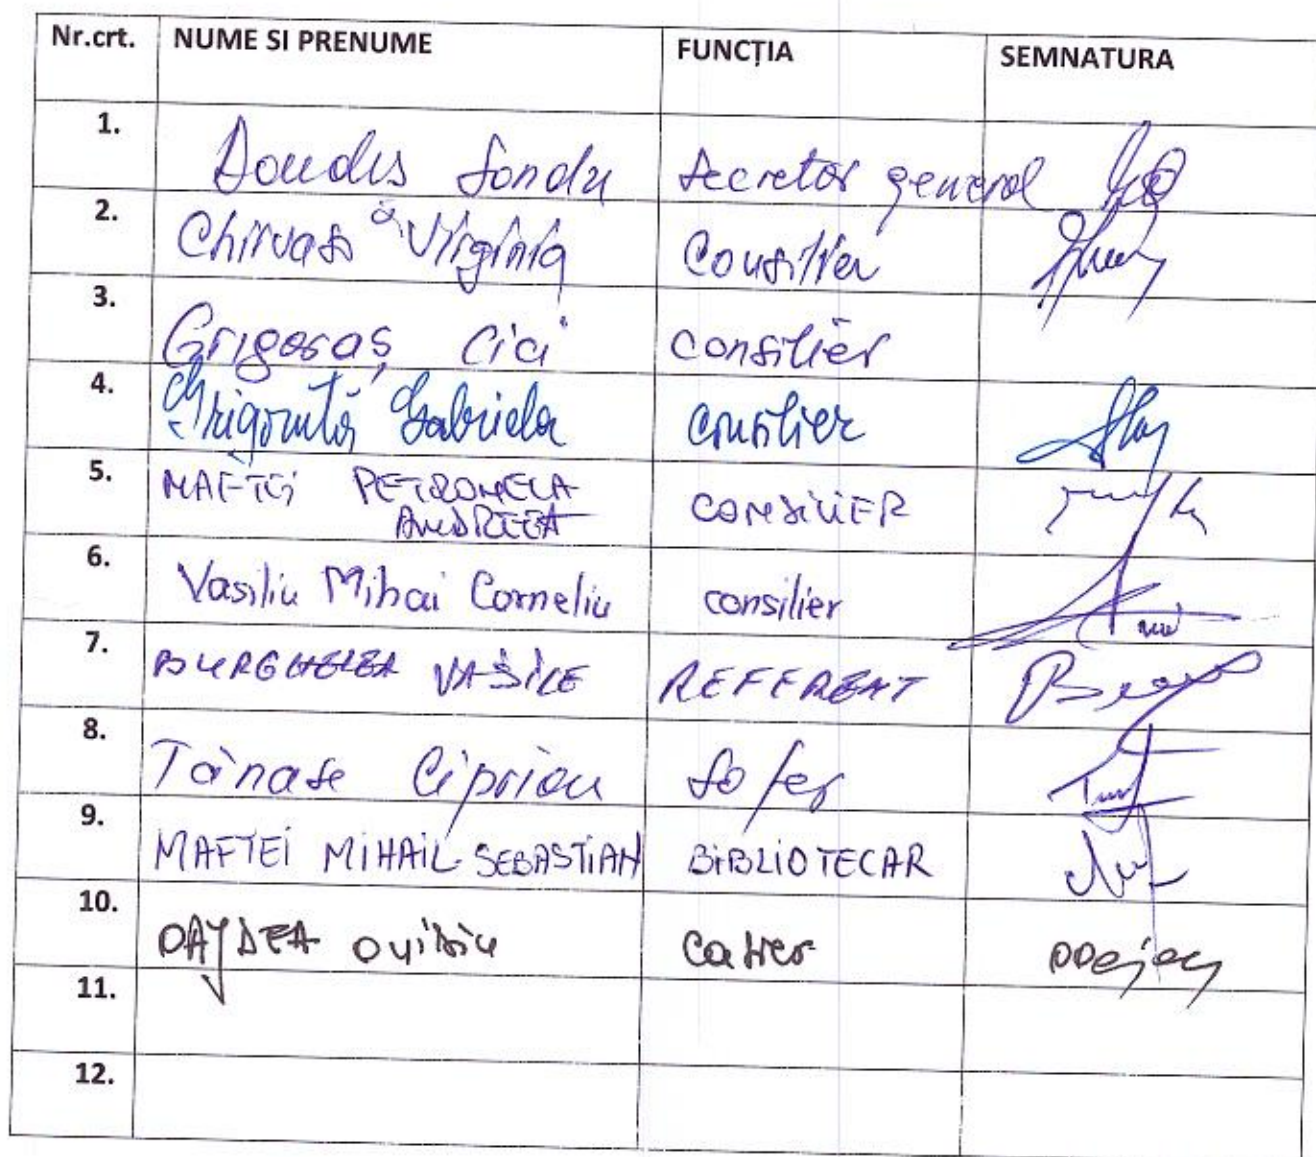 Nr.crt. NUME SI PRENUME FUNCȚIA SEMNATURA
1. secretar general
2. Chirvasă Virginia Consilier
3. Grigoraș Cici consilier
4. Grigoruță Gabriela consilier
5. MAFTEI PETRONELA CONSILIER
ANDREEA
6. Vasiliu Mihai Corneliu consilier
7. BURGHELEA VASILE REFERENT
8. Tănase Ciprian sofer
9. MAFTEI MIHAIL-SEBASTIAN BIBLIOTECAR
10. Ovidiu Casier
11.
12.